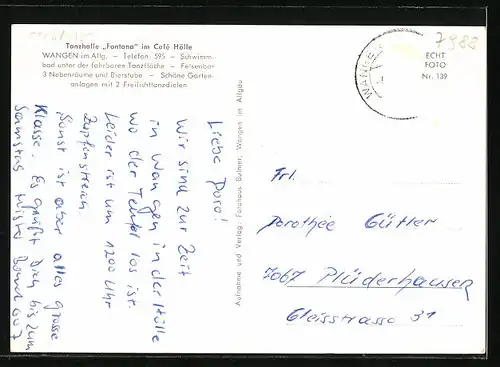 Tanzhalle „Fontana" im Café Hölle
WANGEN im Allg. – Telefon 595 – Schwimm-
bad unter der fahrbaren Tanzfläche – Felsenbar
3 Nebenräume und Bierstube – Schöne Garten-
anlagen mit 2 Freilichttanzdielen
Liebe Doro!
Wir sind zur Zeit
in Wangen in der Hölle
wo der Teufel los ist.
Leider ist um 1200 Uhr
Zapfenstreich
Sonst ist aber alles grosse
Klasse. Es grüßt Dich bis zum
Samstag Mister Bond 007
Aufnahme und Verlag: Fotohaus Balmer, Wangen im Allgäu
WANGE
ECHT
FOTO
Nr. 139
7988
Frl.
Dorothee Güttler
7067 Plüderhausen
Gleisstrasse 31